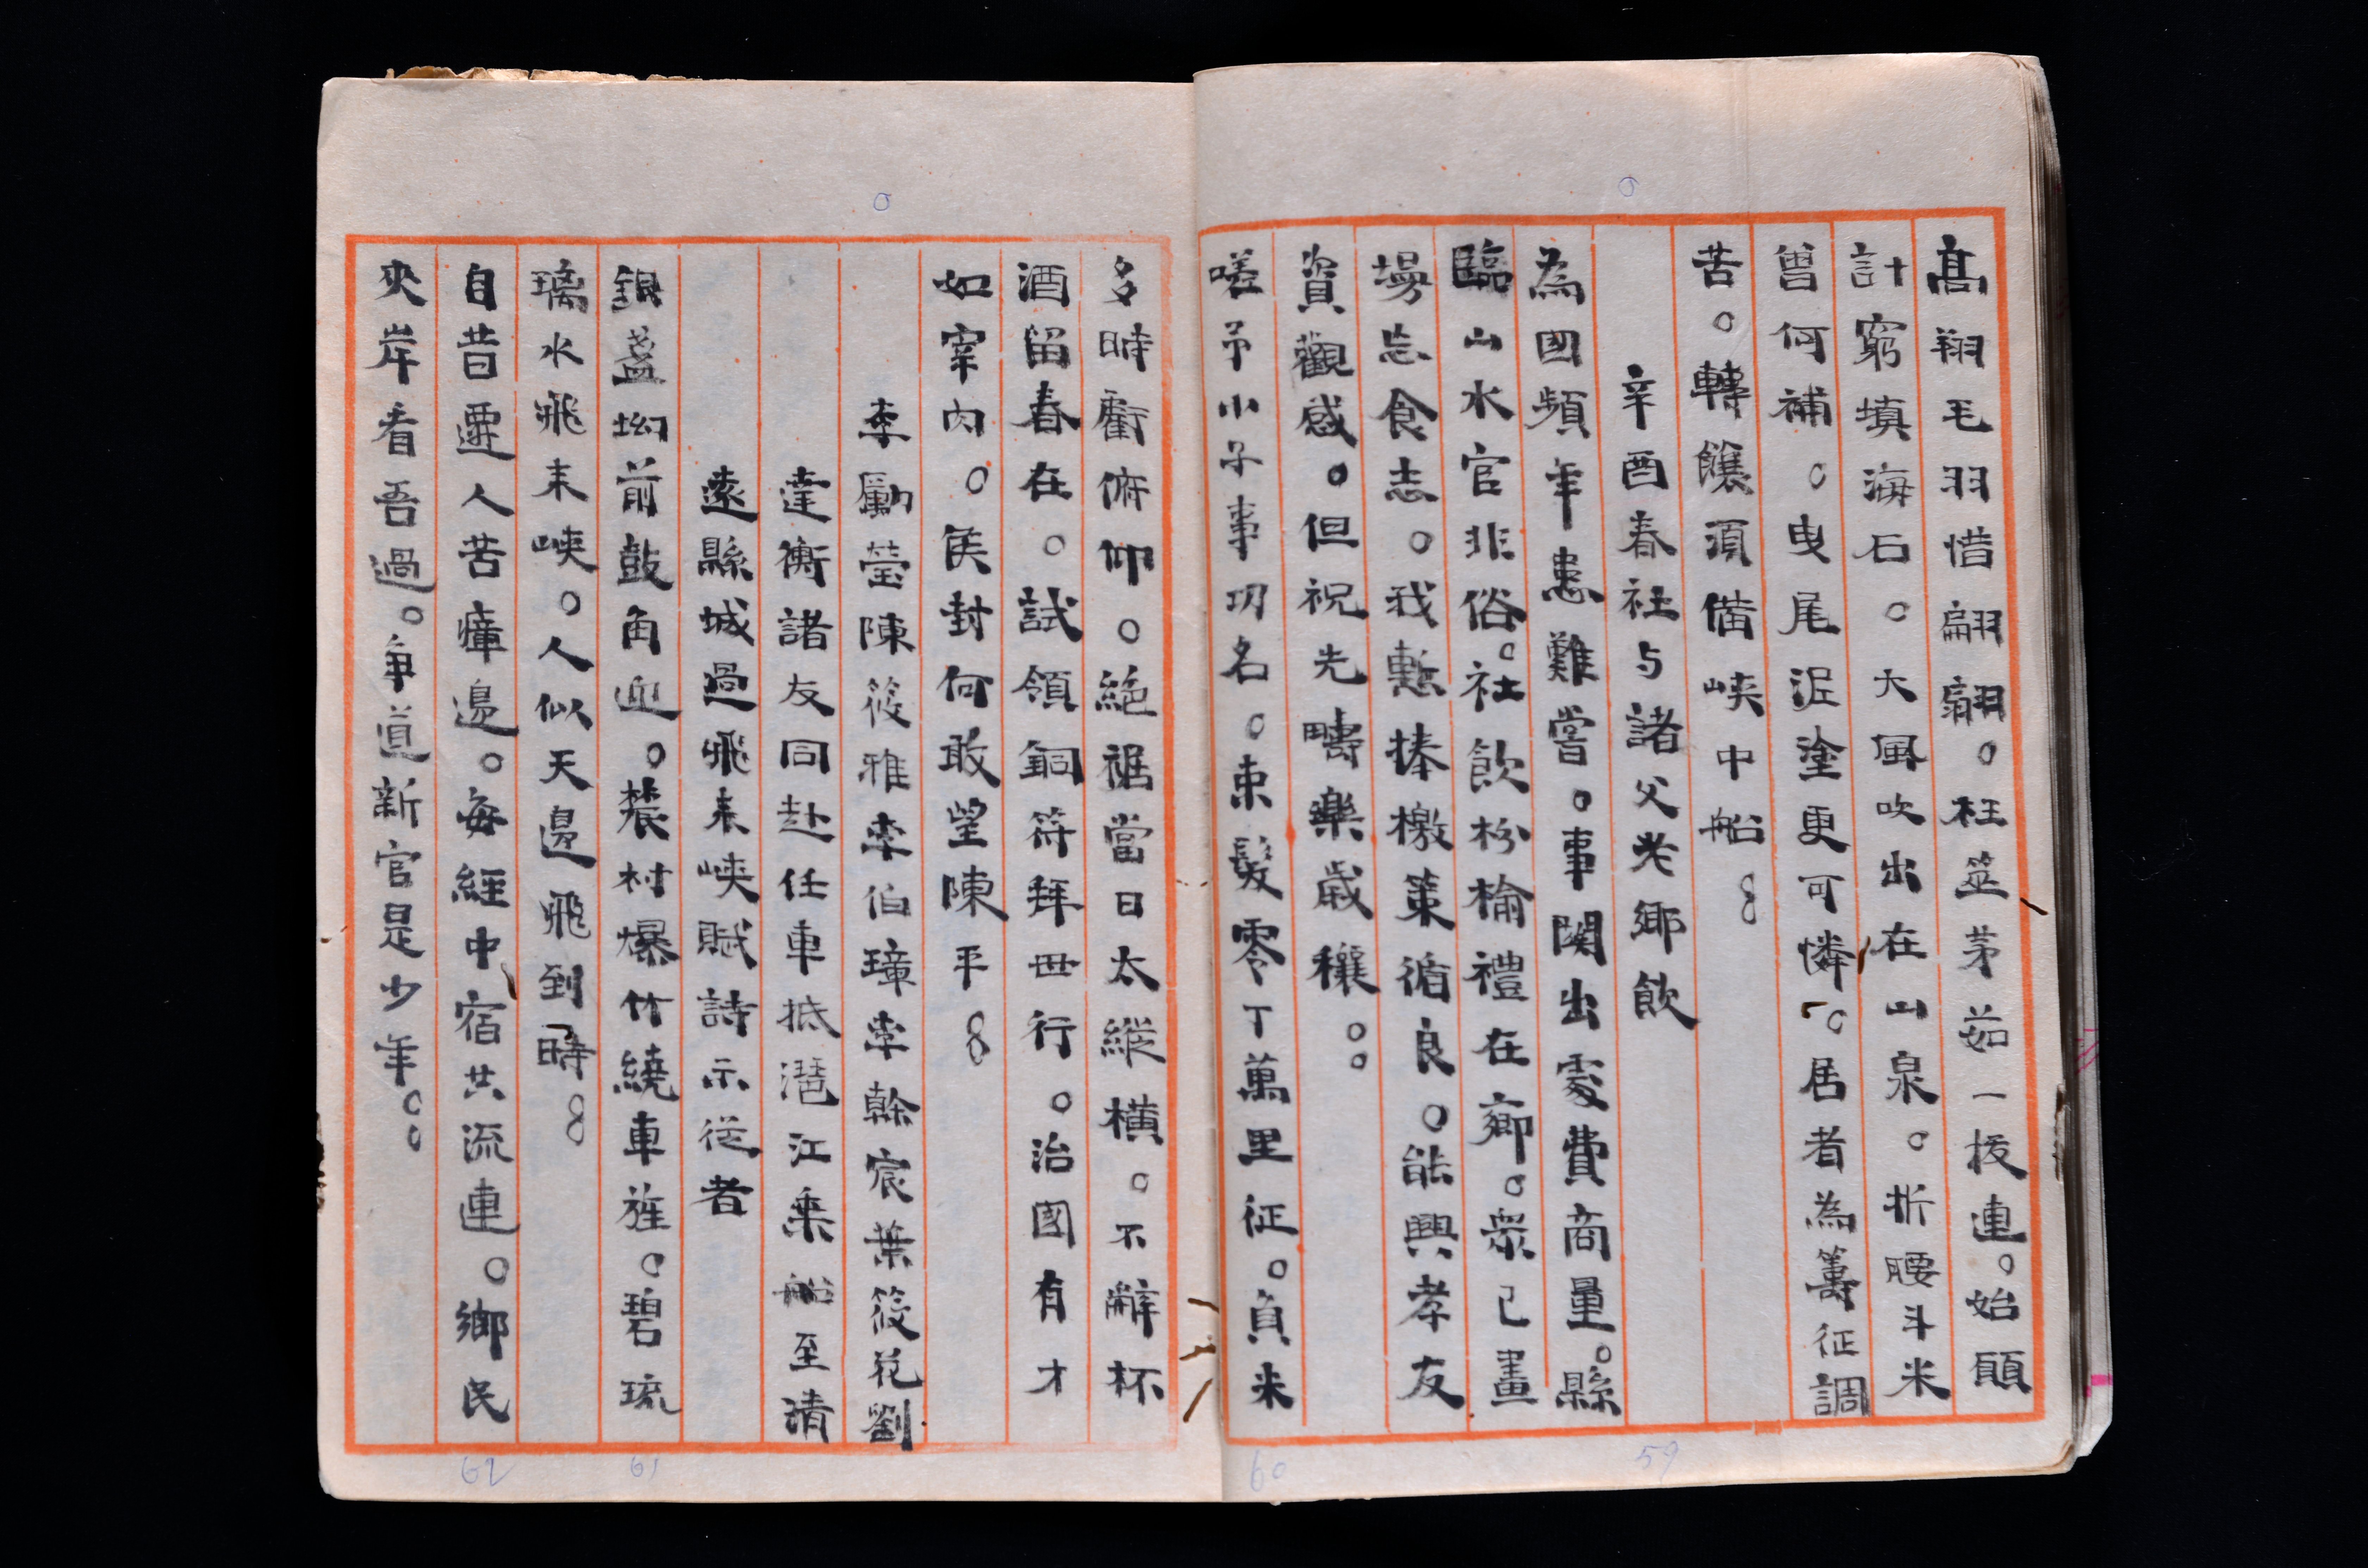 高翔毛羽惜翩翩。枉筮茅茹一拔連。始願
計窮填海石。大風吹出在山泉。折腰斗米
曾何補。曳尾泥塗更可憐。居者為籌征調
苦。轉饟須備峽中船。。
辛酉春社与諸父老鄉飲
為國頻年患難嘗。事関出處費商量。縣
臨山水官非俗。社飲枌榆禮在鄉。眾已畫
場忘食志。我慙捧檄策循良。能興孝友
資觀感。但祝先疇樂歲穰。。
嗟予小子事功名。束髮零丁萬里征。負米
多時虧俯仰。絕裾當日太縱橫。不辭杯
酒留春在。試領銅符拜母行。治國有才
如宰肉。侯封何敢望陳平。。
李勵莹陳筱雅李伯璋李幹宸葉筱花劉
達衡諸友同赴任車抵濦江乘船至清
遠縣城過飛來峽賦詩示從者
銀盞坳前鼓角迎。農村爆竹繞車旌。碧琉
璃水飛來峽。人似天邊飛到時。。
自昔遷人苦瘴邊。每經中宿共流連。鄉民
夾岸看吾過。争道新官是少年。。
59
60
61
62